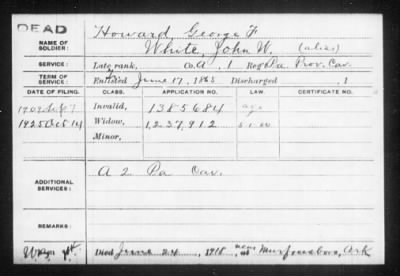 DEAD
NAME OF SOLDIER: Howard, George F
White, John W. (alias)
SERVICE: Late rank, Co. A, 1 Reg't Pa. Prov. Cav.
TERM OF SERVICE: Enlisted June 17, 1865 Discharged , 1
DATE OF FILING. CLASS. APPLICATION NO. LAW. CERTIFICATE NO.
1909 Sept 7 Invalid, 1385684 age
1925 Oct 14 Widow, 1,237,912
Minor,
ADDITIONAL SERVICES: A 2 Pa Cav.
REMARKS:
Died June 24, 1918, near at Murfreesboro, Ark